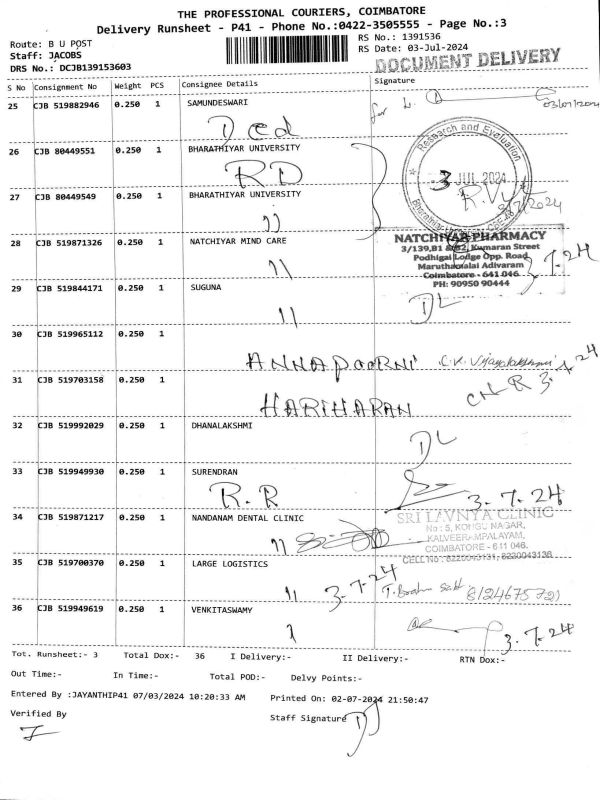 THE PROFESSIONAL COURIERS, COIMBATORE
Delivery Runsheet - P41 - Phone No.:0422-3505555 - Page No.:3
Route: B U POST
RS No.: 1391536
Staff: JACOBS
RS Date: 03-Jul-2024
DRS No.: DCJB139153603
DOCUMENT DELIVERY
S No Consignment No Weight PCS Consignee Details Signature
25 CJB 519882946 0.250 1 SAMUNDESWARI
for L.
03/07/2024
26 CJB 80449551 0.250 1 BHARATHIYAR UNIVERSITY
RD
Research and Evaluation
3 JUL 2024
27 CJB 80449549 0.250 1 BHARATHIYAR UNIVERSITY
28 CJB 519871326 0.250 1 NATCHIYAR MIND CARE
NATCHIYAR PHARMACY
3/139,B1 & B2, Kumaran Street
Podhigai Lodge Opp. Road
Maruthamalai Adivaram
Coimbatore - 641 046
PH: 90950 90444
3.7.24
29 CJB 519844171 0.250 1 SUGUNA
DL
30 CJB 519965112 0.250 1
ANNAPOORNI C.V. Vijayalakshmi
31 CJB 519703158 0.250 1
HARIHARAN
3.7.24
32 CJB 519992029 0.250 1 DHANALAKSHMI
DL
33 CJB 519949930 0.250 1 SURENDRAN
R.R 3.7.24
34 CJB 519871217 0.250 1 NANDANAM DENTAL CLINIC
SRI LAVNYA CLINIC
No : 5, KONGU NAGAR,
KALVEERAMPALAYAM,
COIMBATORE - 611 046.
35 CJB 519700370 0.250 1 LARGE LOGISTICS
3.7.24
36 CJB 519949619 0.250 1 VENKITASWAMY
3.7.24
Tot. Runsheet:- 3 Total Dox:- 36 I Delivery:- II Delivery:- RTN Dox:-
Out Time:- In Time:- Total POD:- Delvy Points:-
Entered By :JAYANTHIP41 07/03/2024 10:20:33 AM Printed On: 02-07-2024 21:50:47
Verified By
Staff Signature